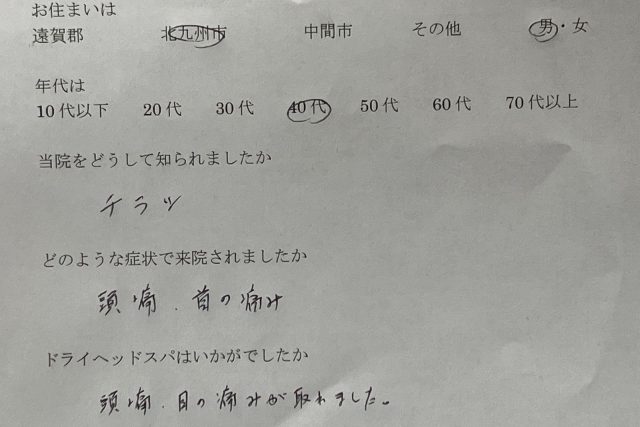 お住まいは
遠賀郡 北九州市 中間市 その他 男・女
年代は
10代以下 20代 30代 40代 50代 60代 70代以上
当院をどうして知られましたか
チラツ
どのような症状で来院されましたか
頭痛．首の痛み
ドライヘッドスパはいかがでしたか
頭痛．目の痛みが取れました。